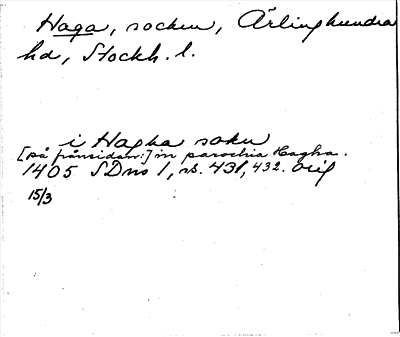 Haga, socken, Ärlinghundra
hd, Stockh. l.
i Hagha sokn
[på frånsidan:] in parochia Hagha.
1405 SDns 1, s. 431, 432. orig
15/3